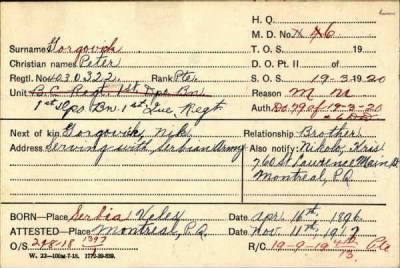 H. Q.
M. D. No. X 4 6
Surname Gorgovich T. O. S. 19
Christian names Peter D. O. Pt. II of
Regtl. No. 4030322. Rank Pte. S. O. S. 19-3-1920
Unit B.C. Regt. 1st Dpo Bn Reason M U
1st Dpo Bn 1st Que. Regt Auth. Do 79 of 19-3-20
Next of kin Gorgovik, Nik Relationship Brother
Address Serving with Serbian Army Also notify: Nikolo, Kris
760 St Lawrence Main St
Montreal, P.Q.
BORN—Place Serbia Veles Date Apr 16th, 1896
ATTESTED—Place Montreal, P.Q. Date Nov 11th, 1917
O/S 298-18 1397 R/C 19-9-19 Pte
13.
W. 22—100M-7-18. 1772-39-839.